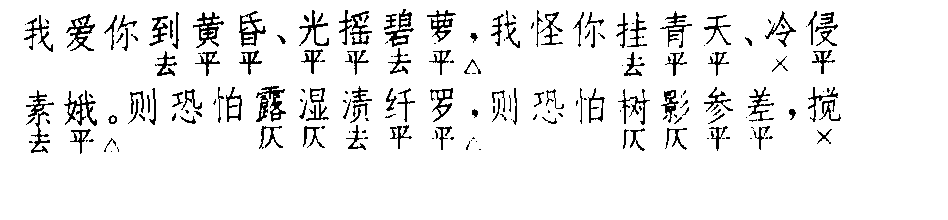 我爱你到黄昏、光摇碧萝，我怪你挂青天、冷侵
去平平 平平去平△ 去平平 ×平
素娥。则恐怕露湿渍纤罗，则恐怕树影参差，搅
去平△ 仄仄去平平△ 仄仄平平 ×